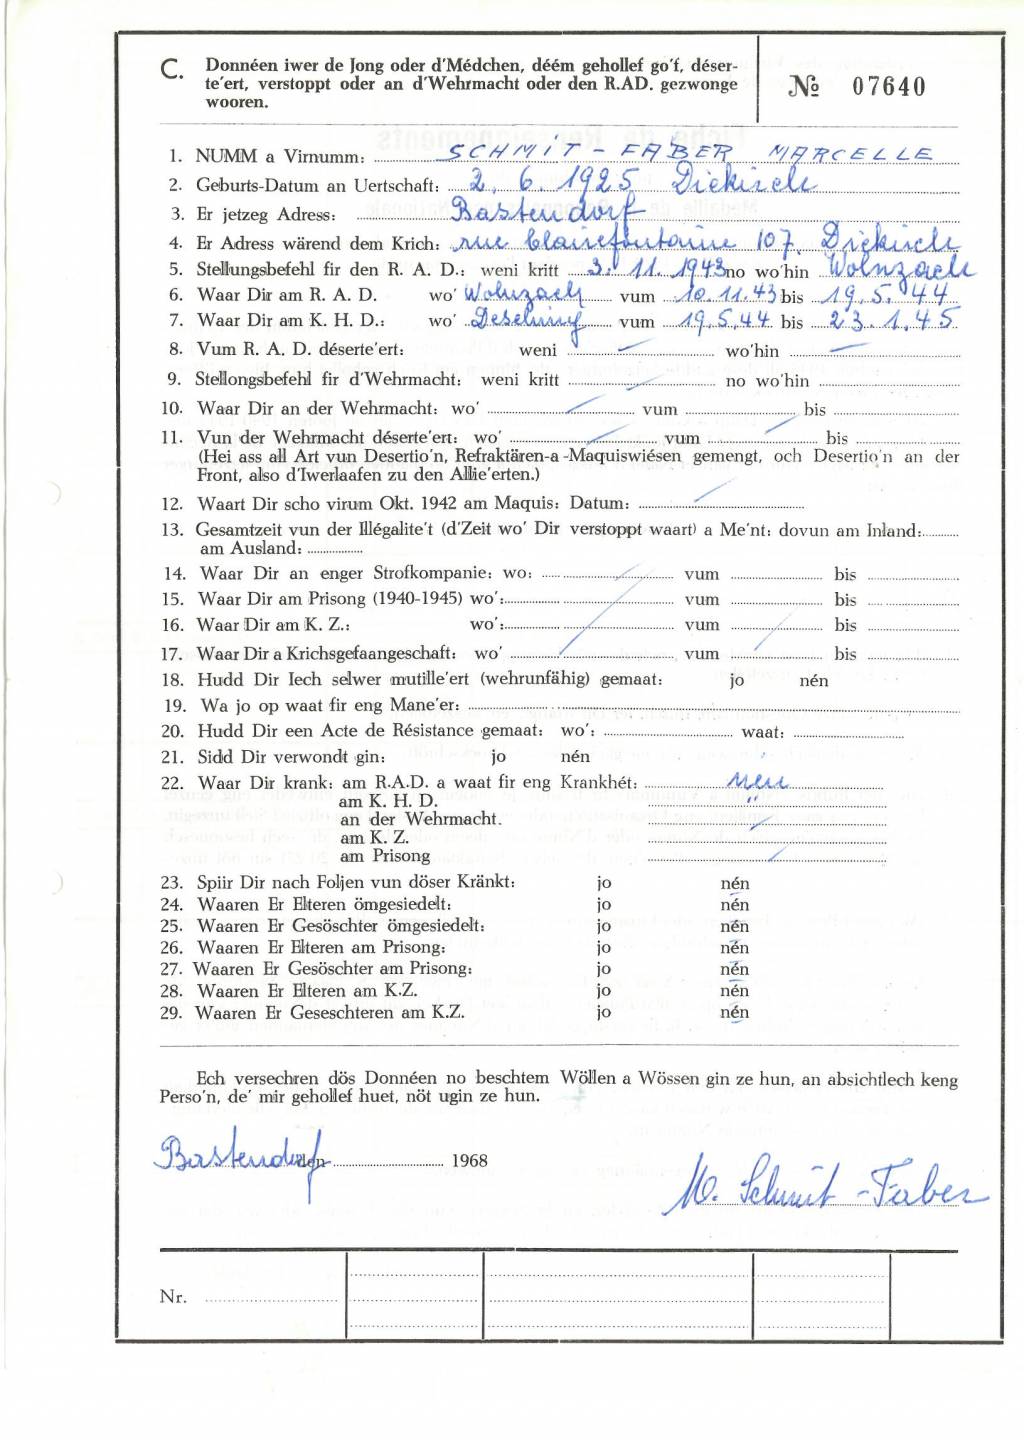 C. Donnéen iwer de Jong oder d'Médchen, déém gehollef go'f, déser-
te'ert, verstoppt oder an d'Wehrmacht oder den R.AD. gezwonge
wooren.
№ 07640
1. NUMM a Virnumm: SCHMIT-FABER MARCELLE
2. Geburts-Datum an Uertschaft: 2. 6. 1925 Diekirch
3. Er jetzeg Adress: Bastendorf
4. Er Adress wärend dem Krich: rue Clairefontaine 107. Diekirch
5. Stellungsbefehl fir den R. A. D.: weni kritt 3. 11. 1943 no wo'hin Wolnzach
6. Waar Dir am R. A. D. wo' Wolnzach vum 10.11.43 bis 19.5.44
7. Waar Dir am K. H. D.: wo' Deschnng vum 19.5.44 bis 23.1.45
8. Vum R. A. D. déserte'ert: weni — wo'hin —
9. Stellongsbefehl fir d'Wehrmacht: weni kritt no wo'hin
10. Waar Dir an der Wehrmacht: wo' vum bis
11. Vun der Wehrmacht déserte'ert: wo' vum bis
(Hei ass all Art vun Desertio'n, Refraktären-a-Maquiswiésen gemengt, och Desertio'n an der
Front, also d'Iwerlaafen zu den Allie'erten.)
12. Waart Dir scho virum Okt. 1942 am Maquis: Datum:
13. Gesamtzeit vun der Illégalite't (d'Zeit wo' Dir verstoppt waart) a Me'nt: dovun am Inland:
am Ausland:
14. Waar Dir an enger Strofkompanie: wo: vum bis
15. Waar Dir am Prisong (1940-1945) wo': vum bis
16. Waar Dir am K. Z.: wo': vum bis
17. Waar Dir a Krichsgefaangeschaft: wo' vum bis
18. Hudd Dir Iech selwer mutille'ert (wehrunfähig) gemaat: jo nén
19. Wa jo op waat fir eng Mane'er:
20. Hudd Dir een Acte de Résistance gemaat: wo': waat:
21. Sidd Dir verwondt gin: jo nén
22. Waar Dir krank: am R.A.D. a waat fir eng Krankhét: néu
am K. H. D. "
an der Wehrmacht.
am K. Z.
am Prisong
23. Spiir Dir nach Foljen vun döser Kränkt: jo nén
24. Waaren Er Elteren ömgesiedelt: jo nén
25. Waaren Er Gesöschter ömgesiedelt: jo nén
26. Waaren Er Elteren am Prisong: jo nén
27. Waaren Er Gesöschter am Prisong: jo nén
28. Waaren Er Elteren am K.Z. jo nén
29. Waaren Er Geseschteren am K.Z. jo nén
Ech versechren dös Donnéen no beschtem Wöllen a Wössen gin ze hun, an absichtlech keng
Perso'n, de' mir gehollef huet, nöt ugin ze hun.
Bastendorf den 1968
M. Schmit-Faber
Nr.